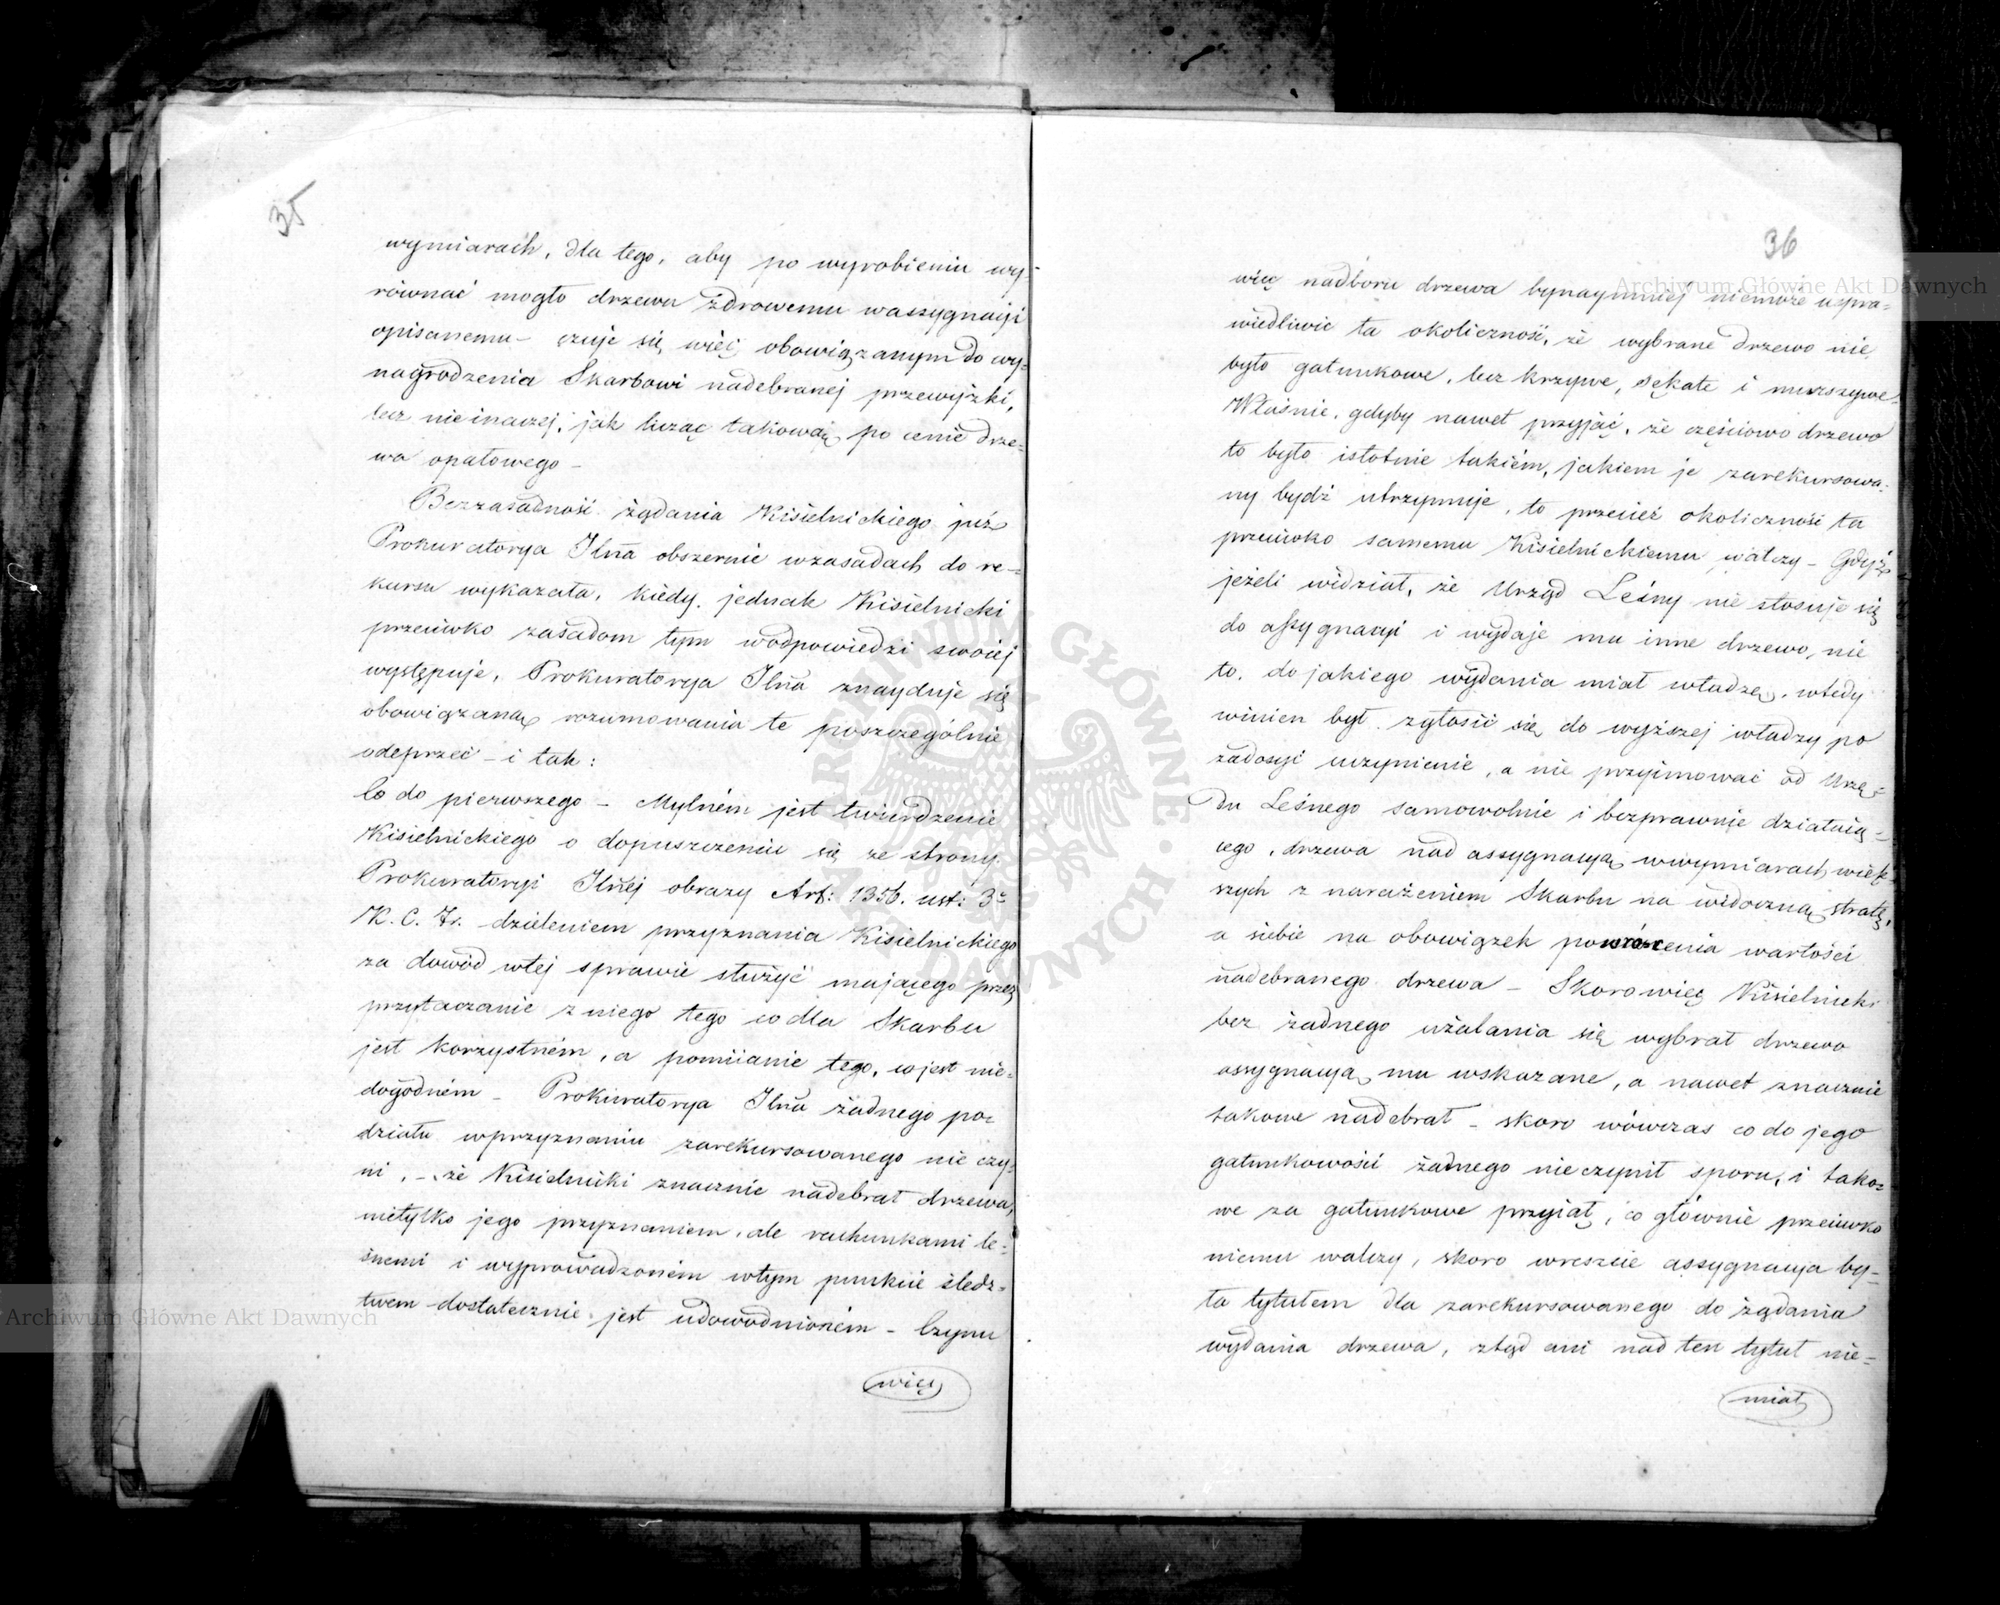 35
wymiarach, dla tego, aby po wyrobieniu wy-
równać mogło drzewu zdrowemu wassygnacyi
opisanemu – czuje się więc obowiązanym do wy-
nagrodzenia Skarbowi nadebranej przewyżki,
lecz nieinaczej, jak licząc takową po cenie drze-
wa opałowego –
Bezzasadność żądania Kisielnickiego już
Prokuratorya Jlna obszernie wzasadach do re-
kursu wykazała, kiedy jednak Kisielnicki
przeciwko zasadom tym wodpowiedzi swoiej
występuje, Prokuratorya Jlna znayduje się
obowiązaną rozumowania te poszczególnie
odeprzeć – i tak:
Co do pierwszego – Mylném jest twierdzenie
Kisielnickiego o dopuszczeniu się ze strony
Prokuratoryi Jlnéj obrazy Art: 1356. ust: 3º
K. C. Fr. dzieleniem przyznania Kisielnickiego
za dowód wtej sprawie służyć mającego przez
przytaczanie zniego tego co dla Skarbu
jest korzystném, a pomiianie tego, co jest nie-
dogodném – Prokuratorya Jlna żadnego po-
działu wprzyznaniu zarekursowanego nie czy-
ni, – że Kisielnicki znacznie nadebrał drzewa,
nietylko jego przyznaniem, ale rachunkami le-
śnemi i wyprowadzoném wtym punkcie śledz-
twem dostatecznie jest udowodnioném – Czynu
więc
36
więc nadboru drzewa bynaymniej niemoże uspra-
wiedliwić ta okoliczność, że wybrane drzewo nie
było gatunkowe, lecz krzywe, sękate i murszywe –
Właśnie, gdyby nawet przyjąć, że częściowo drzewo
to było istotnie takiém, jakiem je zarekursowa-
ny bydź utrzymuje, to przecież okoliczność ta
przeciwko samemu Kisielnickiemu walczy – Gdyż
jeżeli widział, że Urząd Leśny nie stosuje się
do assygnacyi i wydaje mu inne drzewo, nie
to, do jakiego wydania miał władzę, wtedy
winien był zgłosić się do wyższej władzy po
zadosyć uczynienie, a nie przyimować od Urzę-
du Leśnego samowolnie i bezprawnie działają-
cego, drzewa nad assygnacyą wwymiarach więk-
szych z narażeniem Skarbu na widoczną stratę,
a siebie na obowiązek powrócenia wartości
nadebranego drzewa – Skoro więc Kisielnicki
bez żadnego użalania się wybrał drzewo
assygnacyą mu wskazane, a nawet znacznie
takowe nadebrał – skoro wówczas co do jego
gatunkowości żadnego nieczynił sporu, i tako-
we za gatunkowe przyiął, co głównie przeciwko
niemu walczy, skoro wreszcie assygnacya by-
ła tytułem dla zarekursowanego do żądania
wydania drzewa, ztąd ani nad ten tytuł nie-
miał
Archiwum Główne Akt Dawnych
Archiwum Główne Akt Dawnych
ARCHIWUM GŁÓWNE AKT DAWNYCH